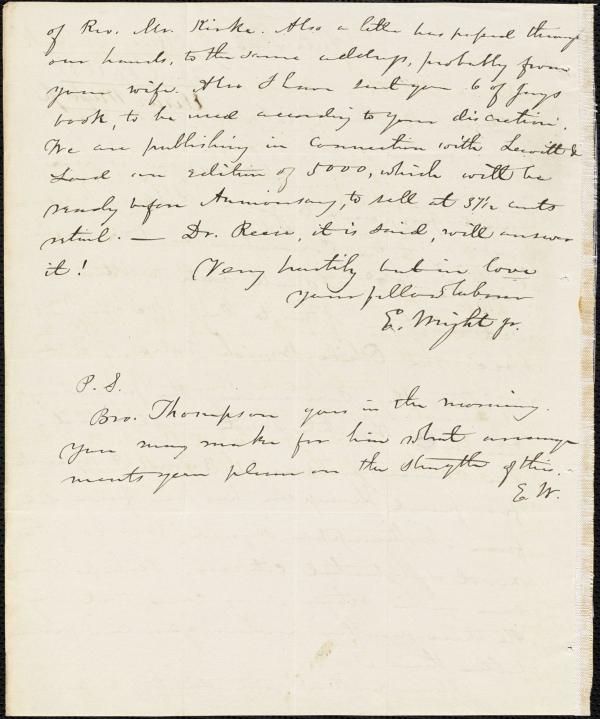 of Rev. Mr. Kirke. Also a letter has passed through
our hands, to the same address, probably from
your wife. Also I have sent you 6 of Jays
book, to be used according to your discretion.
We are publishing in connection with Leavitt &
Lord an edition of 5000, which will be
ready before Anniversary, to sell at 37½ cents
retail. — Dr. Reese, it is said, will answer
it!
Very hastily but in love
your fellow laborer
E. Wright jr.
P. S.
Bro. Thompson goes in the morning.
you may make for him what arrange
ments you please on the strength of this.
E W.